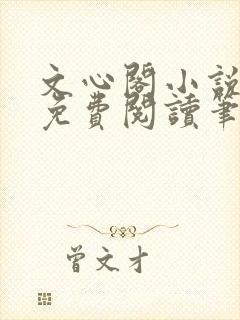 文心閣小說
免費閱讀筆
曾文才